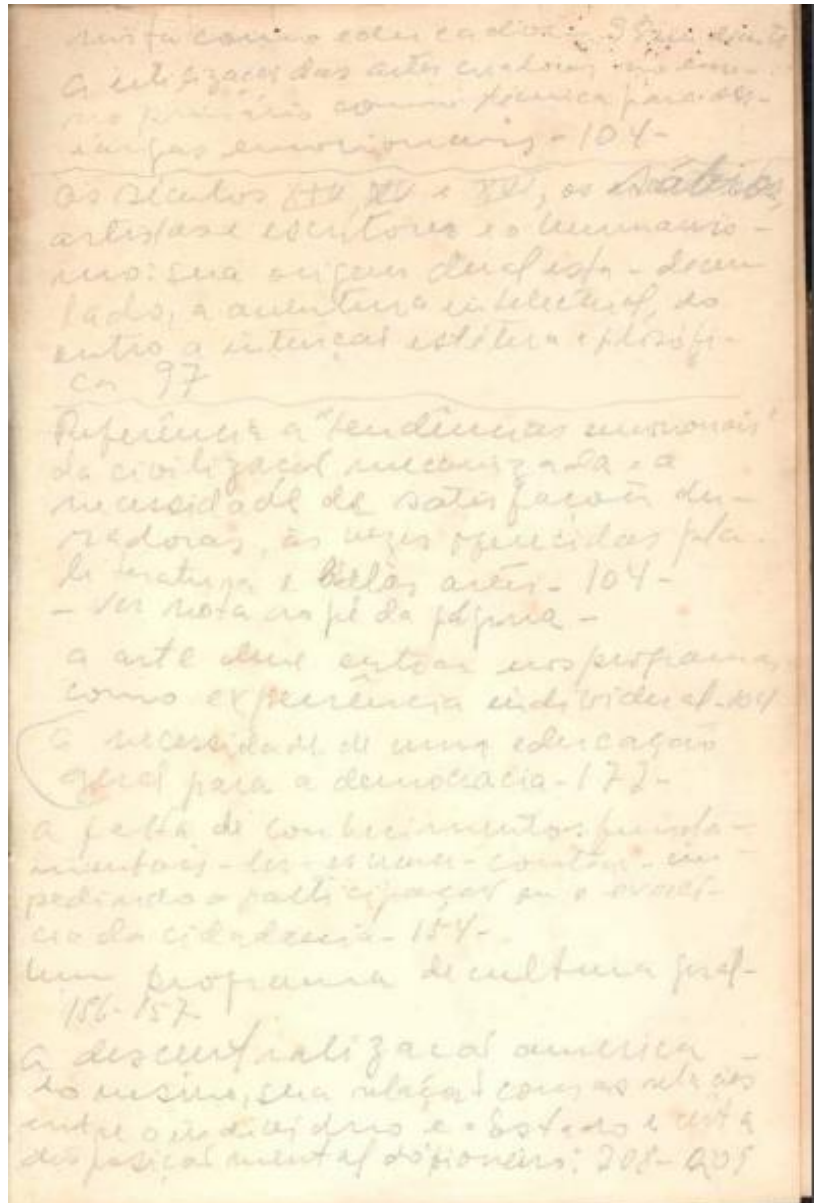 como educador - 98
a utilização das artes criadoras no ensi-
no primário como técnica para des-
cargas emocionais - 104 -
Os séculos XIV, XV e XVI, os sábios,
artistas e escritores e o humanis-
mo: sua origem dualista - de um
lado, a aventura intelectual, do
outro a intenção estética e filosófi-
ca 97
Referência a "tendências emocionais"
da civilização mecanizada e a
necessidade de satisfações du-
radoras, às vezes oferecidas pela
literatura e bellas artes - 104 -
- Ver nota ao pé da página -
a arte deve entrar nos programas
como experiência individual - 104
a necessidade de uma educação
geral para a democracia - 177 -
a falta de conhecimentos funda-
mentais - ler - escrever - contar - im
pedindo a participação ou o exercí-
cio da cidadania - 154 -
Um programa de cultura geral -
156-157
a descentralização america
do ensino, sua relação com as relações
entre o indivíduo e o Estado e esta
disposição mental do pioneiro: 208-209